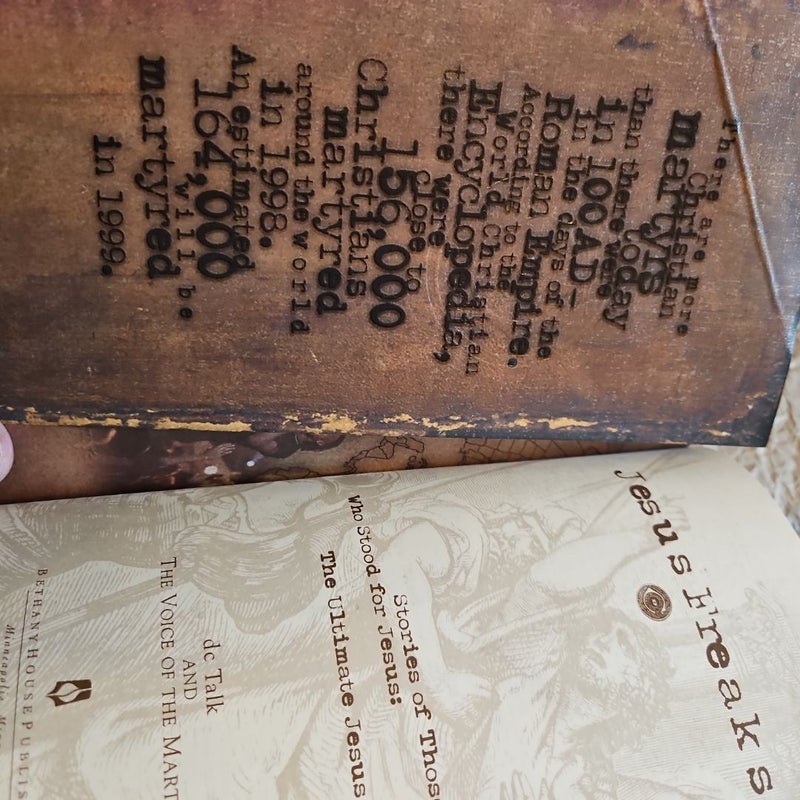 There are more
Christian
martyrs
today
than there were
in 100AD-
in the days of the
Roman Empire.
According to the
World Christian
Encyclopedia,
there were
close to
156,000
Christians
martyred
around the world
in 1998.
An estimated
164,000
will be
martyred
in 1999.
Jesus Freaks
Stories of Those
Who Stood for Jesus:
The Ultimate Jesus
dc Talk
AND
THE VOICE OF THE MART
BETHANYHOUSEPUBLIS
Minneapolis, Min